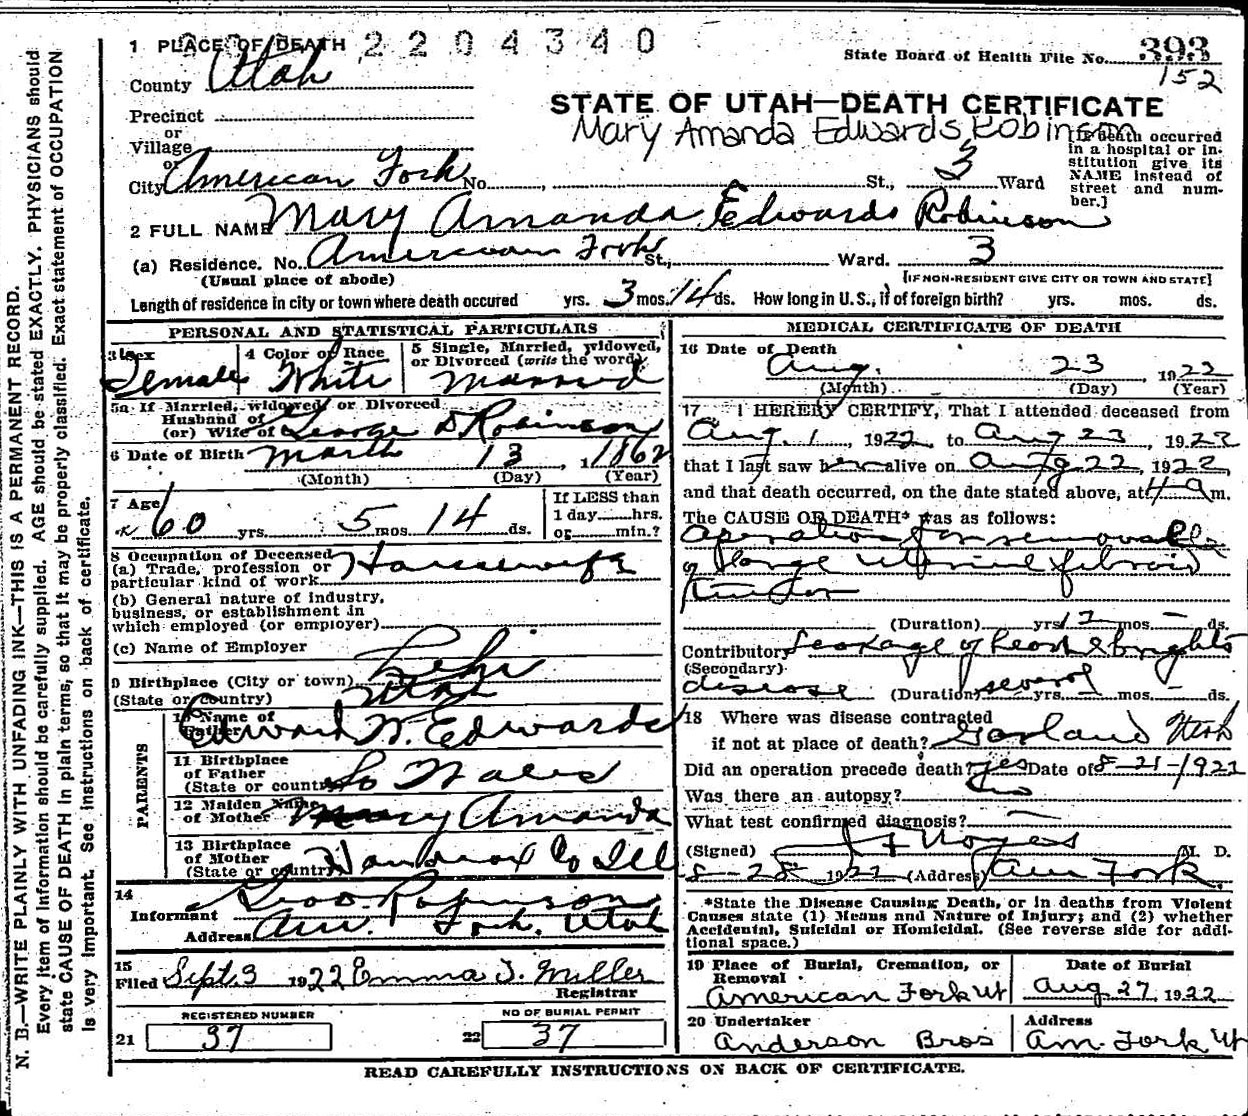 1 PLACE OF DEATH 2204340
State Board of Health File No. 393
152
County Utah
STATE OF UTAH—DEATH CERTIFICATE
Precinct
Mary Amanda Edwards Robinson
or
Village
or
City American Fork No. St., 3 Ward
[If death occurred in a hospital or institution give its NAME instead of street and number.]
2 FULL NAME Mary Amanda Edwards Robinson
(a) Residence. No. American Fork St., Ward. 3
(Usual place of abode) [IF NON-RESIDENT GIVE CITY OR TOWN AND STATE]
Length of residence in city or town where death occured yrs. 3 mos. 14 ds. How long in U. S., if of foreign birth? yrs. mos. ds.
PERSONAL AND STATISTICAL PARTICULARS
3 Sex Female
4 Color or Race White
5 Single, Married, widowed, or Divorced (write the word) Married
5a If Married, widowed, or Divorced
Husband of
(or) Wife of George D Robinson
6 Date of Birth March 13, 1862
(Month) (Day) (Year)
7 Age 60 yrs. 5 mos. 14 ds.
If LESS than
1 day hrs.
or min.?
8 Occupation of Deceased
(a) Trade, profession or
particular kind of work Housewife
(b) General nature of industry,
business, or establishment in
which employed (or employer)
(c) Name of Employer
9 Birthplace (City or town) Lehi
(State or country) Utah
PARENTS
10 Name of
Father Edward W. Edwards
11 Birthplace
of Father
(State or country) So Wales
12 Maiden Name
of Mother Mary Amanda
13 Birthplace
of Mother
(State or country) Hancock Co Ill
14
Informant Geo D. Robinson
Address Am. Fork, Utah
15
Filed Sept 3 1922 Emma J. Miller
Registrar
REGISTERED NUMBER
21 37
NO OF BURIAL PERMIT
22 37
MEDICAL CERTIFICATE OF DEATH
16 Date of Death
Aug. 23 1922
(Month) (Day) (Year)
17 I HEREBY CERTIFY, That I attended deceased from
Aug. 1, 1922, to Aug 23, 1922
that I last saw her alive on Aug 22, 1922,
and that death occurred, on the date stated above, at 4 a m.
The CAUSE OF DEATH* was as follows:
Operation for removal
of large uterine fibroid
tumor
(Duration) yrs mos ds.
Contributory Leakage of heart & brights
(Secondary)
disease (Duration) several yrs. mos. ds.
18 Where was disease contracted
if not at place of death? Garland Utah
Did an operation precede death? yes Date of 8-21-1922
Was there an autopsy? no
What test confirmed diagnosis?
(Signed) Noyes M. D.
8-28 1922 (Address) Am Fork.
*State the Disease Causing Death, or in deaths from Violent
Causes state (1) Means and Nature of Injury; and (2) whether
Accidental, Suicidal or Homicidal. (See reverse side for addi-
tional space.)
19 Place of Burial, Cremation, or
Removal
American Fork Ut
Date of Burial
Aug 27, 1922
20 Undertaker
Anderson Bros
Address
Am. Fork Ut
READ CAREFULLY INSTRUCTIONS ON BACK OF CERTIFICATE.
N. B.—WRITE PLAINLY WITH UNFADING INK—THIS IS A PERMANENT RECORD.
Every item of Information should be carefully supplied. AGE should be stated EXACTLY. PHYSICIANS should
state CAUSE OF DEATH in plain terms, so that it may be properly classified. Exact statement of OCCUPATION
is very important. See instructions on back of certificate.